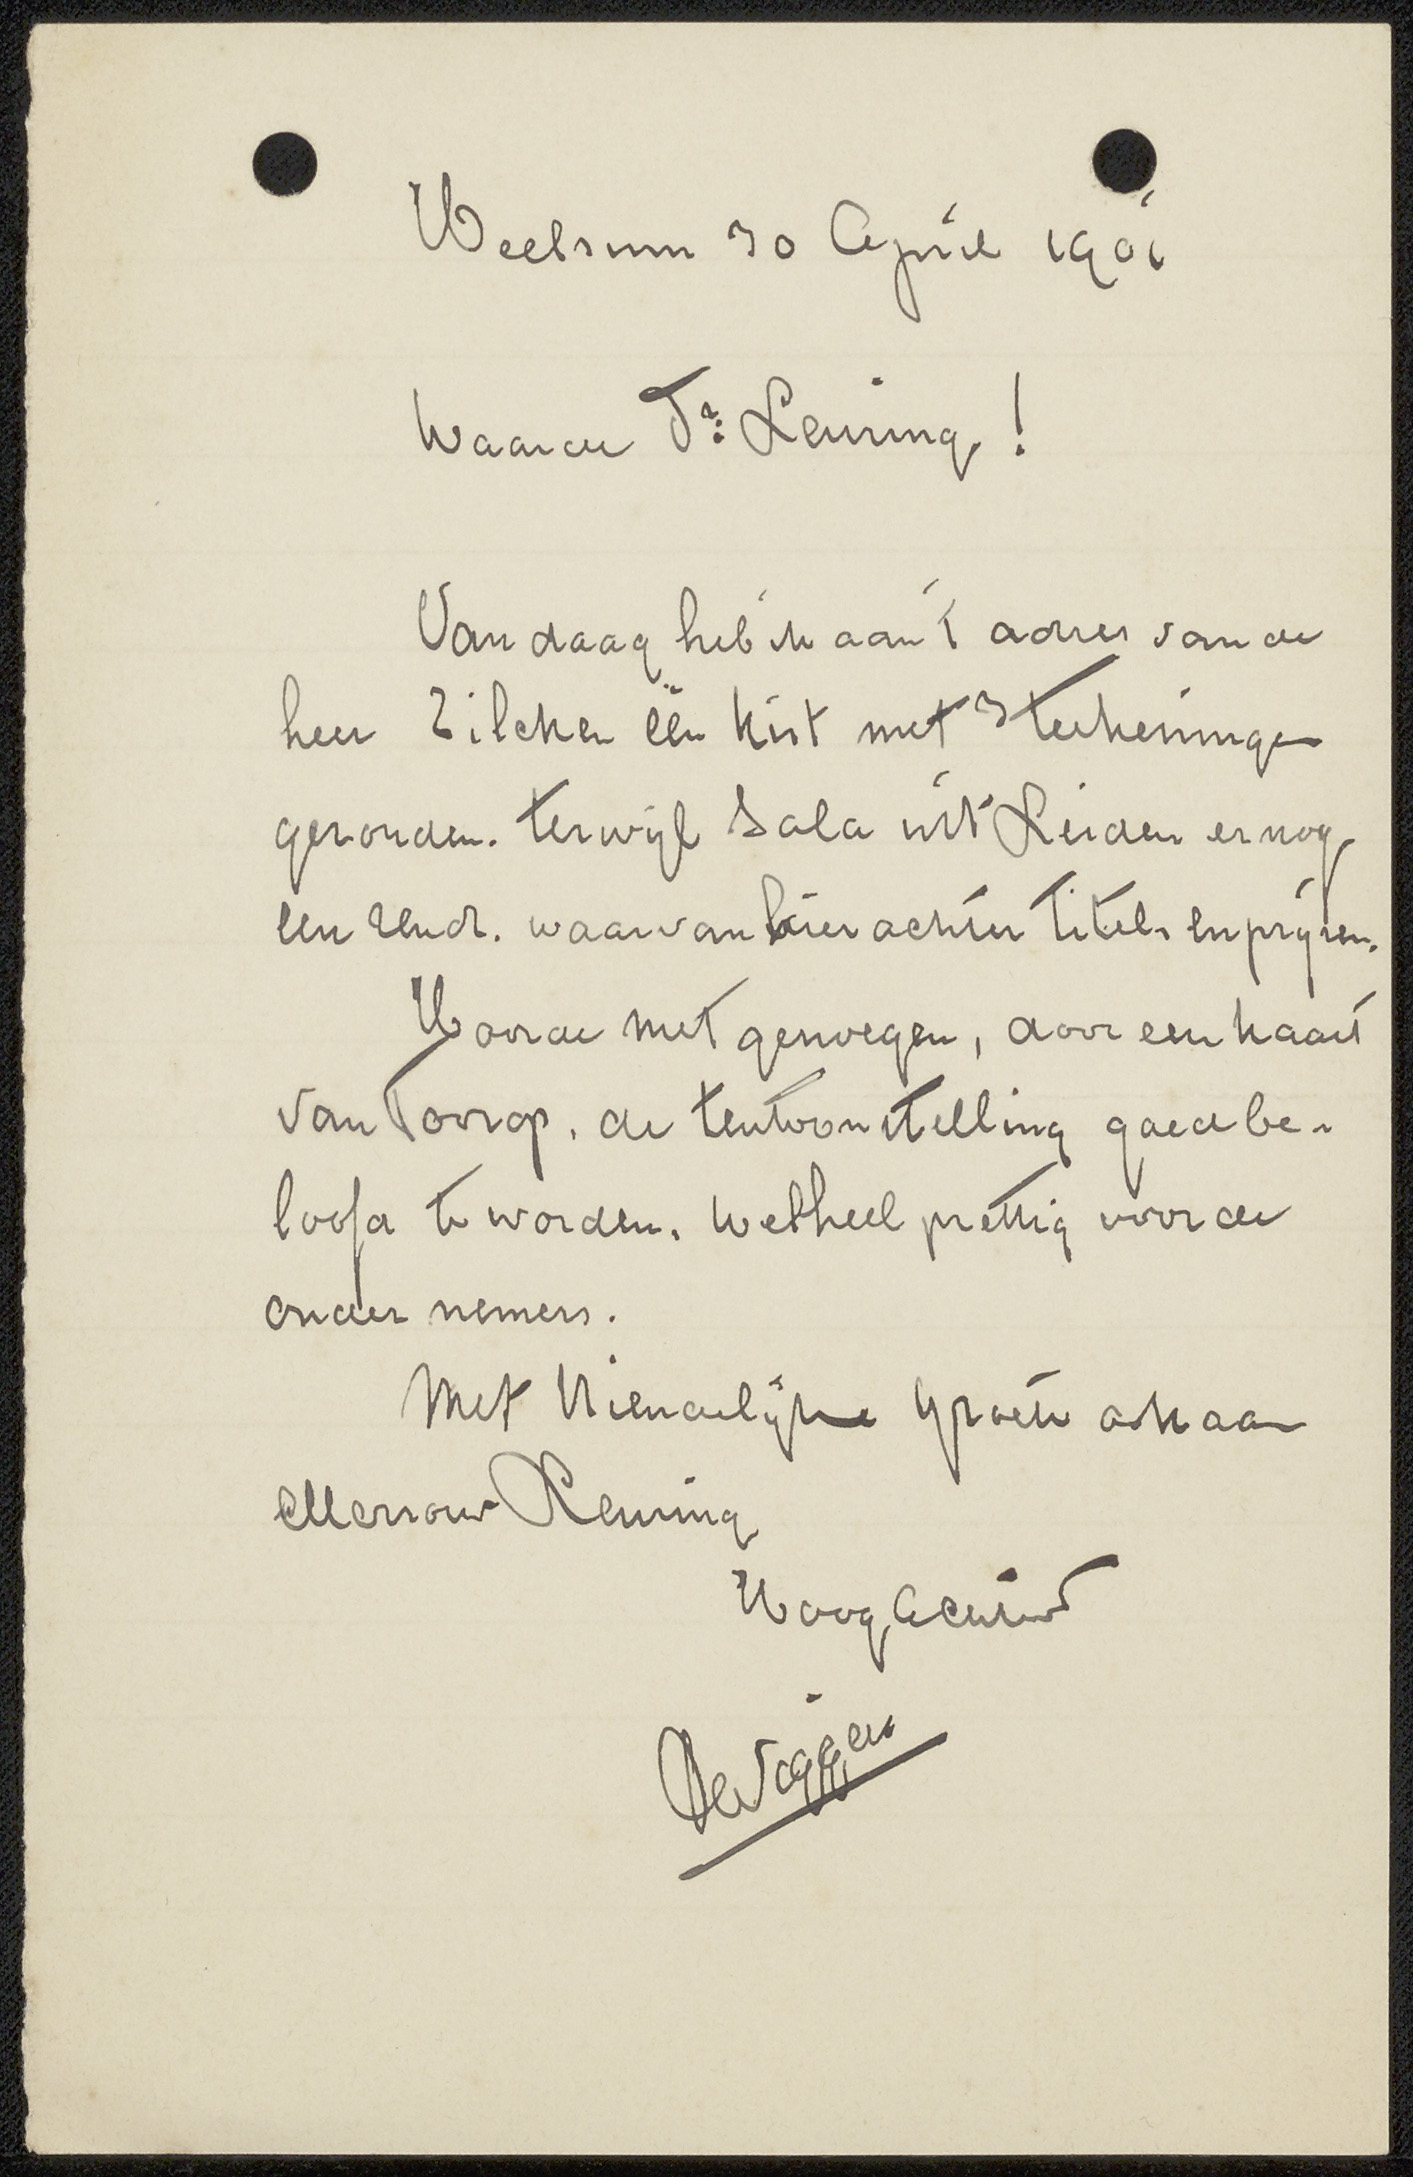 30 April 1901
Waarde Dr: Leuring!
Van daag heb ik aan 't adres van de
heer Zilcken één kist met 3 teekeningen
gezonden. terwijl Sala uit Leiden er nog
een zendt. waarvan hierachter titels en prijzen.
Hoorde met genoegen, door een kaart
van Toorop, de tentoonstelling goed be-
loofd te worden. Wel heel prettig voor de
onder nemers.
Met Vriendelijke groete ook aan
Mevrouw Leuring
Hoog Achtend